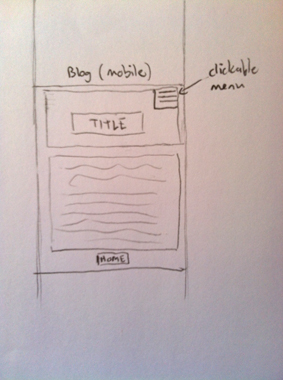 Blog (mobile)
clickable
menu
TITLE
HOME